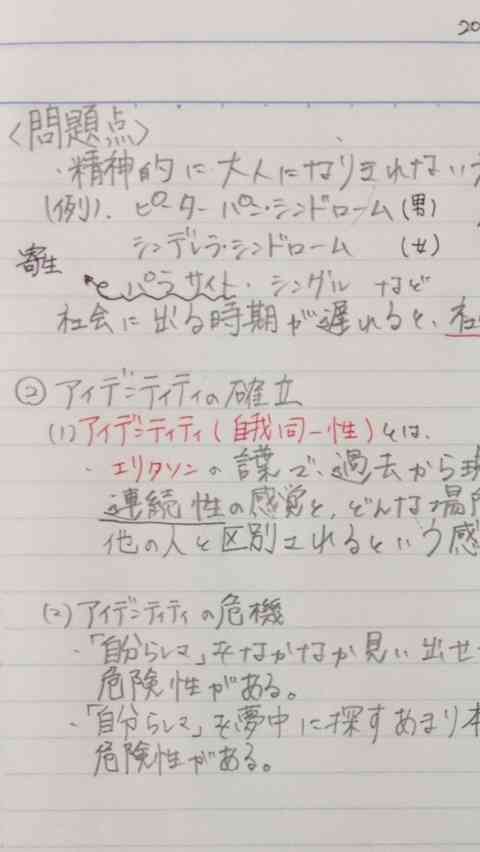 20
〈問題点〉
・精神的に大人になりきれない
(例). ピーターパン・シンドローム (男)
シンデレラ・シンドローム (女)
寄生
パラサイト・シングル など
社会に出る時期が遅れると、社
② アイデンティティの確立
(1) アイデンティティ(自我同一性)とは、
・エリクソンの言葉で、過去から現
連続性の感覚と、どんな場所
他の人と区別されるという感
(2) アイデンティティの危機
・「自分らしさ」をなかなか見い出せ
危険性がある。
・「自分らしさ」を夢中に探すあまり本
危険性がある。